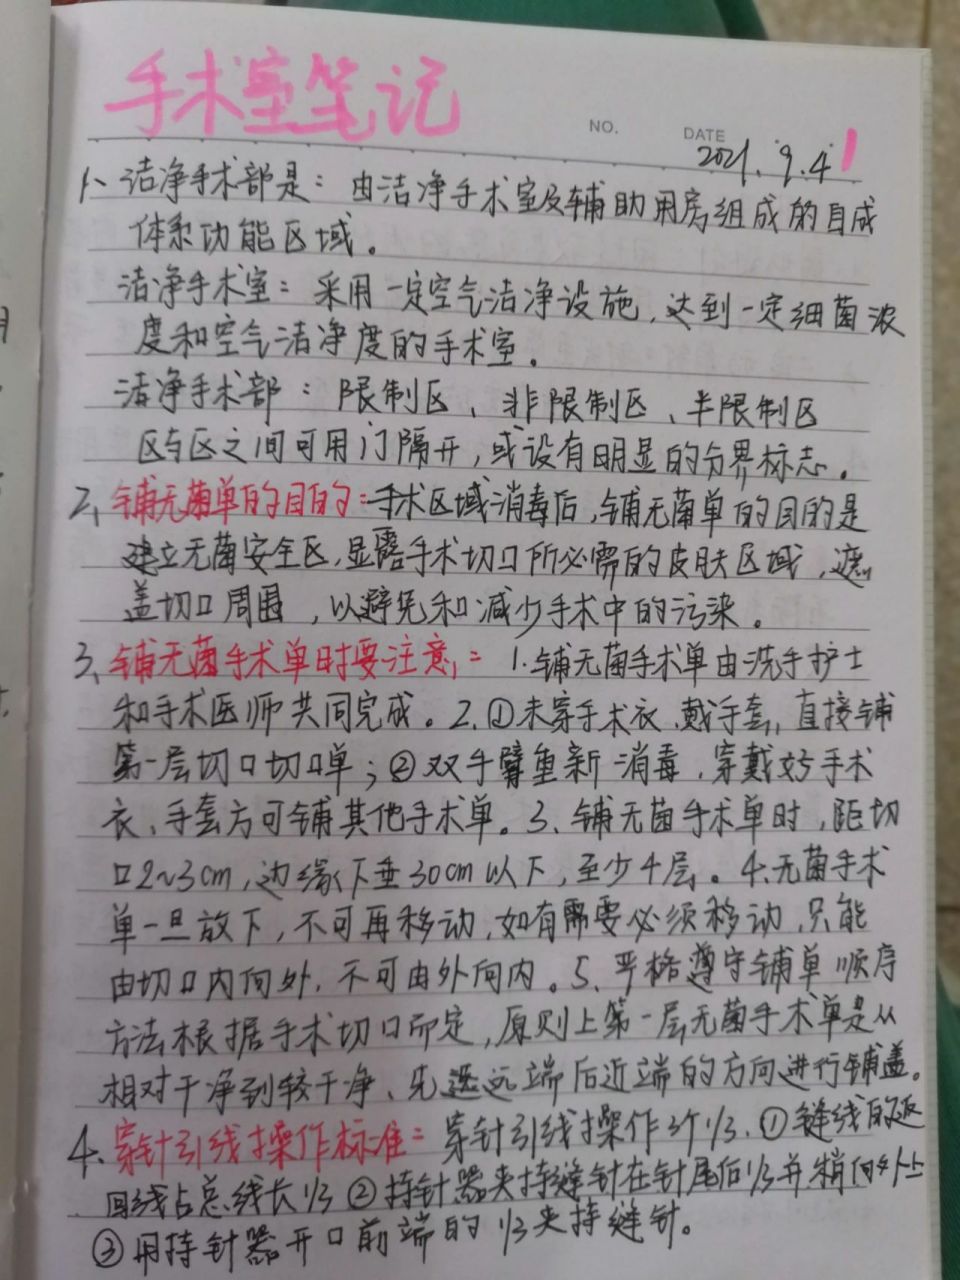 手术室笔记
NO. DATE
2021.9.4 1
1、洁净手术部是：由洁净手术室及辅助用房组成的自成
体系功能区域。
洁净手术室：采用一定空气洁净设施，达到一定细菌浓
度和空气洁净度的手术室。
洁净手术部：限制区、非限制区、半限制区
区与区之间可用门隔开，或设有明显的分界标志。
2、铺无菌单的目的：手术区域消毒后，铺无菌单的目的是
建立无菌安全区，显露手术切口所必需的皮肤区域，遮
盖切口周围，以避免和减少手术中的污染。
3、铺无菌手术单时要注意：1.铺无菌手术单由洗手护士
和手术医师共同完成。2.①未穿手术衣、戴手套，直接铺
第一层切口切口单；②双手臂重新消毒，穿戴好手术
衣、手套方可铺其他手术单。3、铺无菌手术单时，距切
口2~3cm，边缘下垂30cm以下，至少4层。4.无菌手术
单一旦放下，不可再移动，如有需要必须移动，只能
由切口内向外，不可由外向内。5、严格遵守铺单顺序
方法根据手术切口而定，原则上第一层无菌手术单是从
相对干净到较干净、先远端后近端的方向进行铺盖。
4、穿针引线操作标准：穿针引线操作3个1/3.①缝线的返
回线占总线长1/3②持针器夹持缝针在针尾后1/3并稍向外上
③用持针器开口前端的1/3夹持缝针。